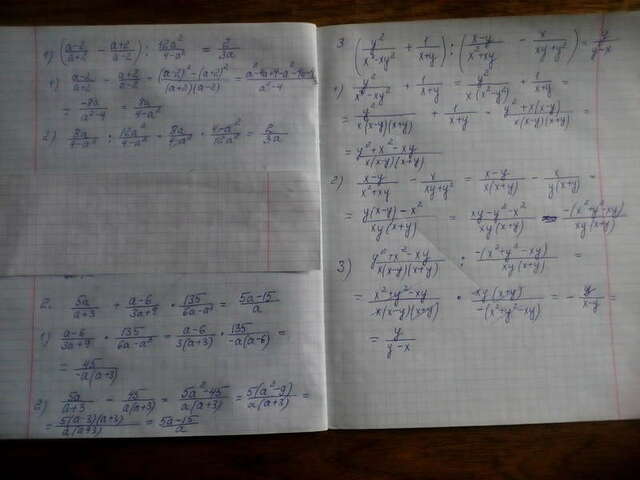 1) (a-2/a+2 - a+2/a-2) : 12a²/4-a² = 2/3a
1) a-2/a+2 - a+2/a-2 = (a-2)² - (a+2)²/(a+2)(a-2) = a²-4a+4-a²-4a-4/a²-4
= -8a/a²-4 = 8a/4-a²
2) 8a/4-a² : 12a²/4-a² = 8a/4-a² · 4-a²/12a² = 2/3a
2. 5a/a+3 + a-6/3a+9 · 135/6a-a² = 5a-15/a
1) a-6/3a+9 · 135/6a-a² = a-6/3(a+3) · 135/-a(a-6) =
= 45/-a(a+3)
2) 5a/a+3 - 45/a(a+3) = 5a²-45/a(a+3) = 5(a²-9)/a(a+3) =
= 5(a-3)(a+3)/a(a+3) = 5a-15/a
3 (y²/x³-xy² + 1/x+y) : (x-y/x²+xy - x/xy+y²) = y/y-x
1) y²/x³-xy² + 1/x+y = y²/x(x²-y²) + 1/x+y =
= y²/x(x-y)(x+y) + 1/x+y = y²+x(x-y)/x(x-y)(x+y) =
= y²+x²-xy/x(x-y)(x+y)
2) x-y/x²+xy - x/xy+y² = x-y/x(x+y) - x/y(x+y) =
= y(x-y)-x²/xy(x+y) = xy-y²-x²/xy(x+y) = -(x²+y²-xy)/xy(x+y)
3) y²+x²-xy/x(x-y)(x+y) : -(x²+y²-xy)/xy(x+y) =
= x²+y²-xy/x(x-y)(x+y) · xy(x+y)/-(x²+y²-xy) = -y/x-y =
= y/y-x